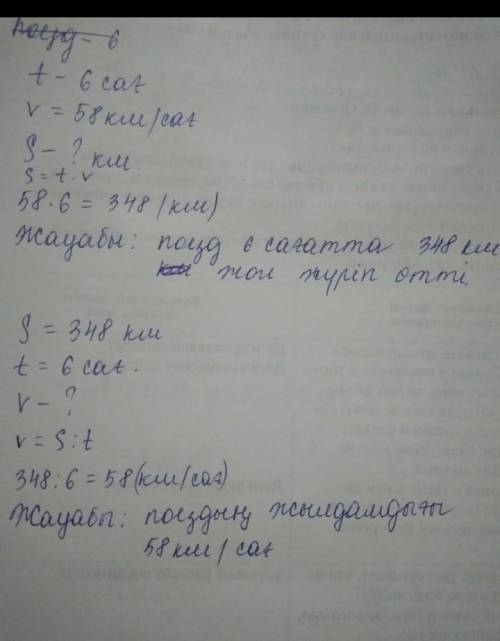 поезд - 6
t - 6 сағ
v = 58 км/сағ
S - ? км.
S = t · v
58 · 6 = 348 (км)
Жауабы: поезд 6 сағатта 348 км
жол жүріп өтті.
S = 348 км
t = 6 сағ.
v - ?
v = S : t
348 : 6 = 58 (км/сағ)
Жауабы: поездың жылдамдығы
58 км / сағ